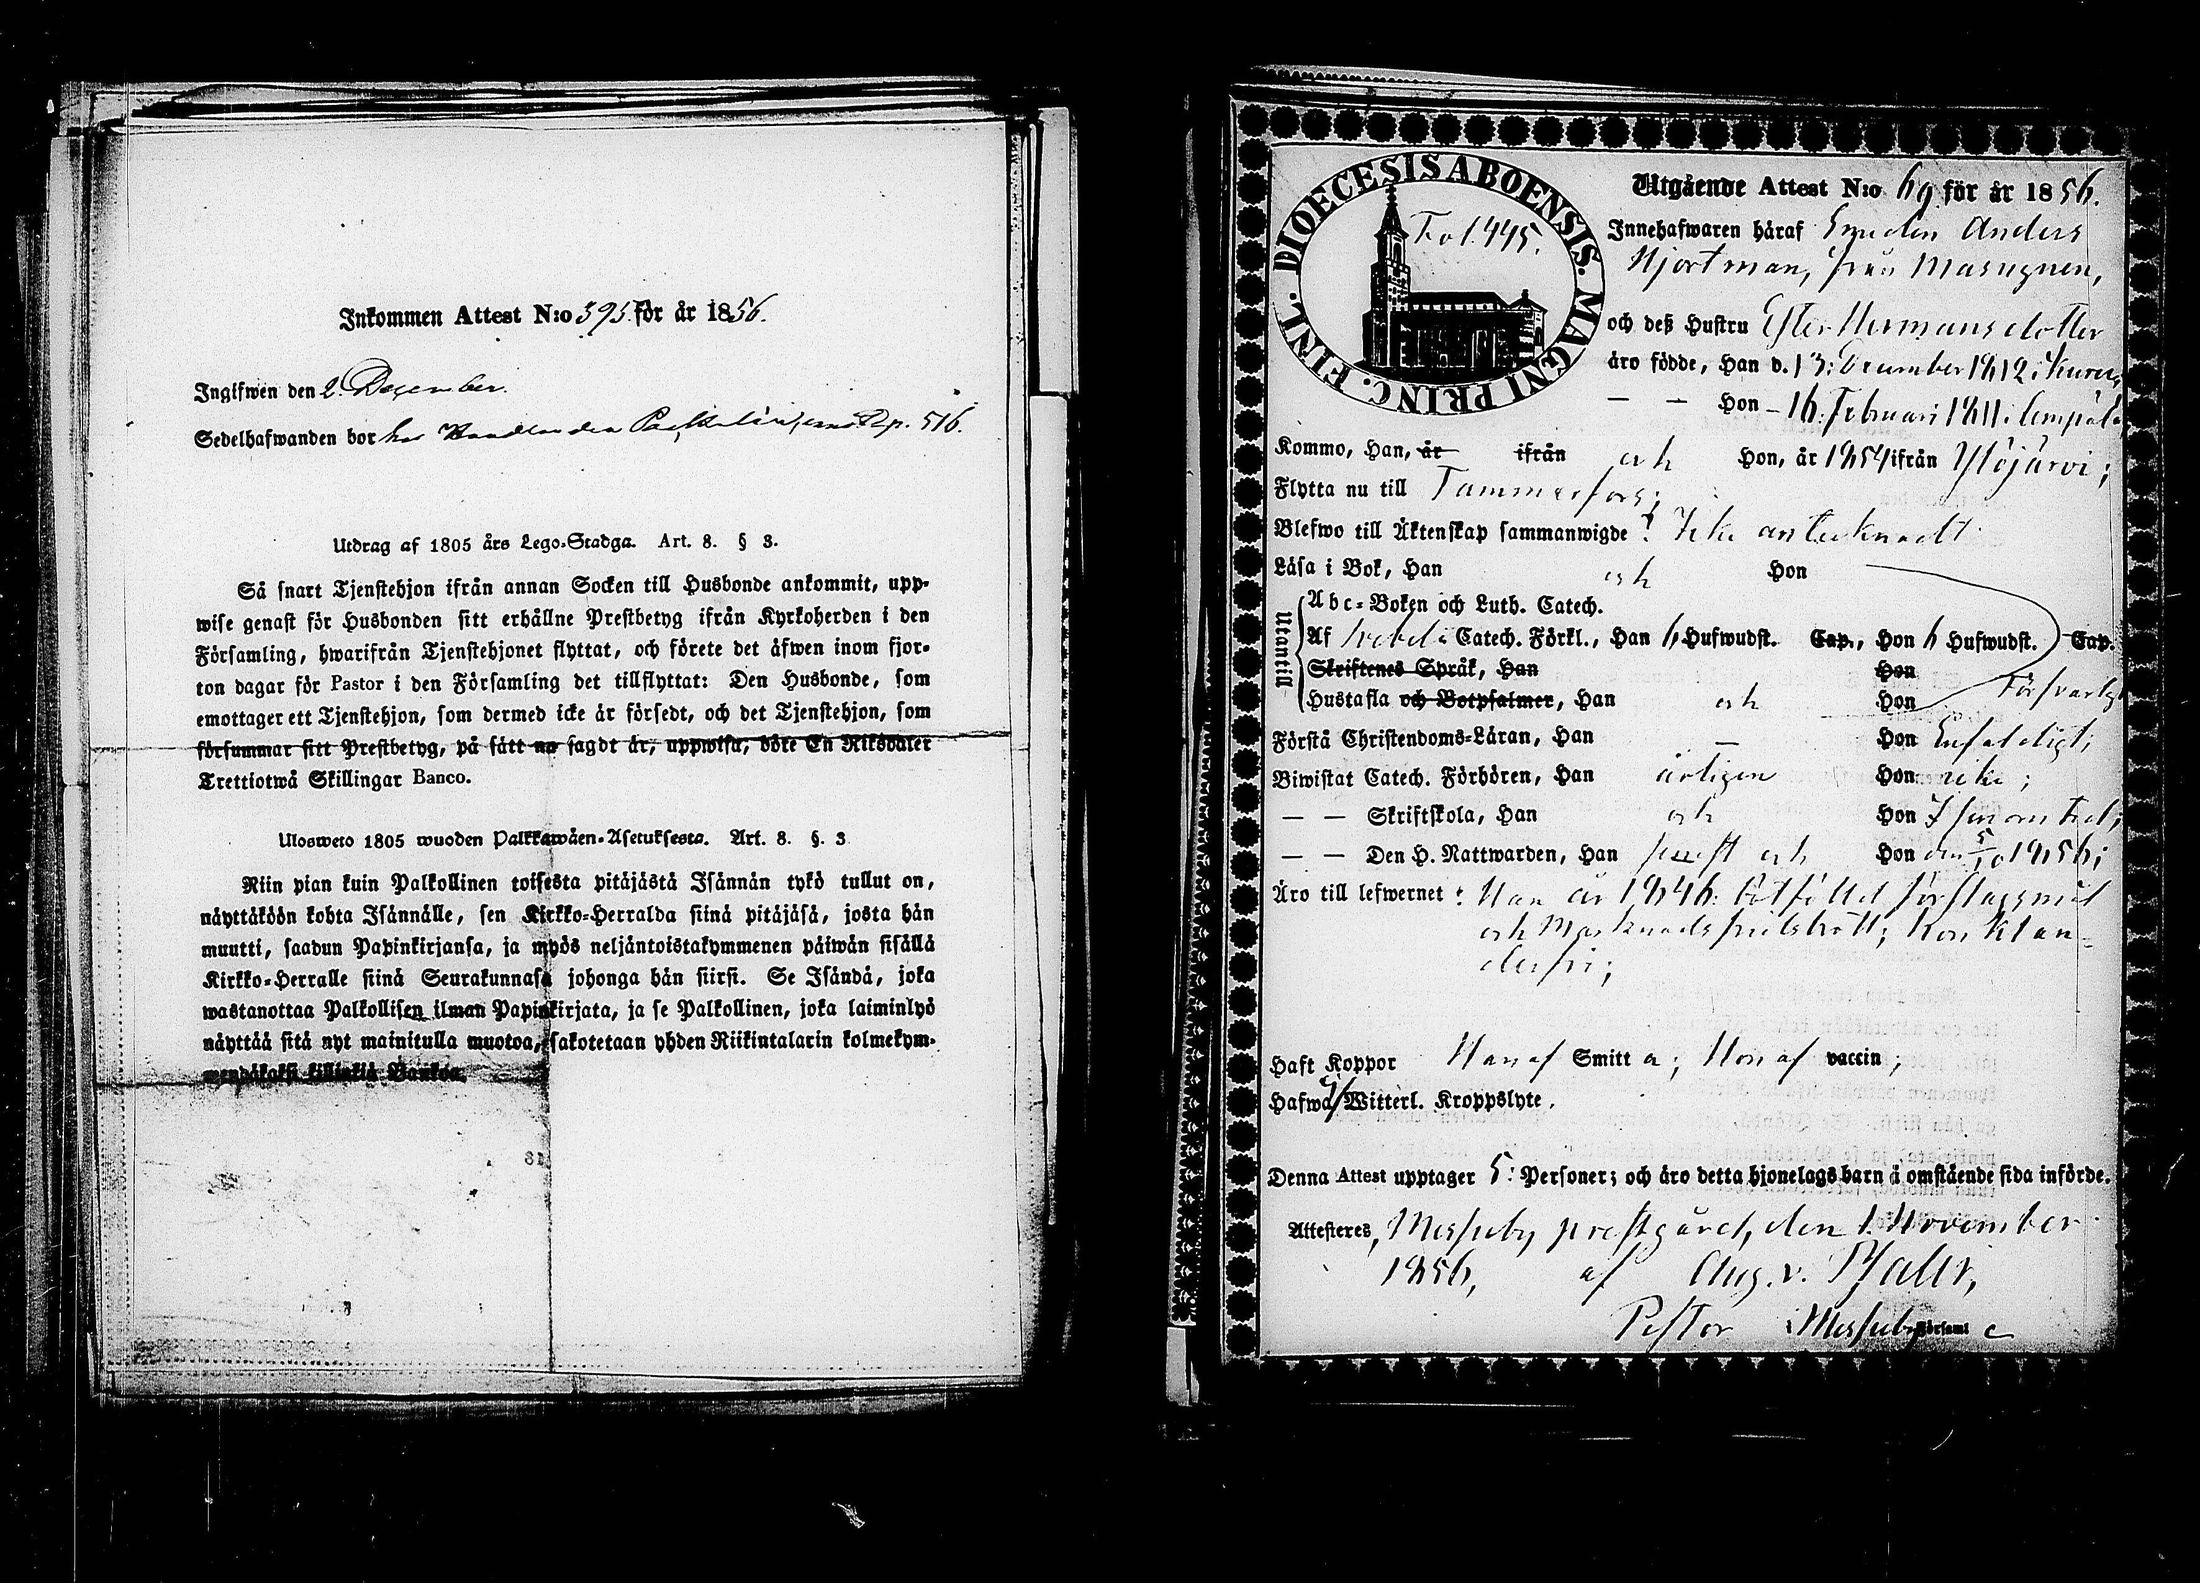 Inkommen Attest N:o 395. för år 1856.
Ingifwen den 2. December.
Sedelhafwanden bor hos Handlanden p. 516.
Utdrag af 1805 års Lego-Stadga. Art. 8. § 3.
Så snart Tjenstehjon ifrån annan Socken till Husbonde ankommit, upp-
wise genast för Husbonden sitt erhållne Prestbetyg ifrån Kyrkoherden i den
Församling, hwarifrån Tjenstehjonet flyttat, och förete det äfwen inom fjor-
ton dagar för Pastor i den Församling det tillflyttat: Den Husbonde, som
emottager ett Tjenstehjon, som dermed icke är försedt, och det Tjenstehjon, som
försummar sitt Prestbetyg, på sätt nu sagdt är, uppwisa, böte En Riksdaler
Trettiotwå Skillingar Banco.
Ulosweto 1805 wuoden Palkkawäen-Asetuksesta. Art. 8. §. 3
Niin pian kuin Palkollinen toisesta pitäjästä Isännän tykö tullut on,
näyttäköön kohta Isännälle, sen Kirkko-Herralda siinä pitäjäsä, josta hän
muutti, saadun Papinkirjansa, ja myös neljäntoistakymmenen päiwän sisällä
Kirkko-Herralle siinä Seurakunnasa johonga hän siirsi. Se Isändä, joka
wastanottaa Palkollisen ilman Papinkirjata, ja se Palkollinen, joka laiminlyö
näyttää sitä nyt mainitulla muotoa, sakotetaan yhden Riikintalarin kolmekym-
mendäkaksi killinkiä Bankoa.
DIOECESIS ABOENSIS. MAGNI PRINC. FINL.
Fol. 445.
Utgående Attest N:o 69 för år 1856.
Innehafwaren häraf Smeden Anders
Hjortman, från Masugnen,
och deß Hustru Ester Hermansdotter
äro födde, Han d. 13: December 1812 i
— — Hon – 16. Februari 1811 i Lempäla
Kommo, Han, år ifrån och Hon, år 1854 ifrån Ylöjärvi;
Flytta nu till Tammerfors;
Blefwo till Äktenskap sammanwigde? Icke antecknadt
Läsa i Bok, Han och Hon
Utantill
Abc-Boken och Luth. Catech.
Af Svebelii Catech. Förkl., Han 6 Hufwudst. Cap., Hon 6 Hufwudst. Cap.
Skriftenes Språk, Han Hon
Hustafla och Botpsalmer, Han och Hon Försvarligt
Förstå Christendoms-Läran, Han — Hon Enfaldigt;
Biwistat Catech. Förhören, Han Hon
— — Skriftskola, Han och Hon
— — Den H. Nattwarden, Han och Hon den 5/10 1856;
Äro till lefwernet: Han är 1846: bötfälld för slagsmål
och Marknadsfridsbrott; Hon klan-
derfri;
Haft Koppor Han af Smitta; Hon af vaccin;
Hafwa ej Witterl. Kroppslyte.
Denna Attest upptager 5: Personer; och äro detta hjonelags barn å omstående sida införde.
Attesteres, Messuby prestgård, den 1. November
1856, af Aug. v. Pfaler,
Pastor i Messuby Församl